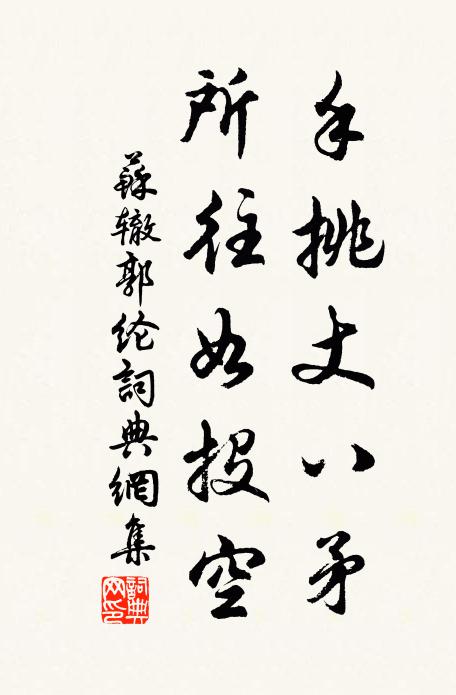 手挑丈八矛
所往如投空
蘇辙郭纶詞典網集
詞典网印